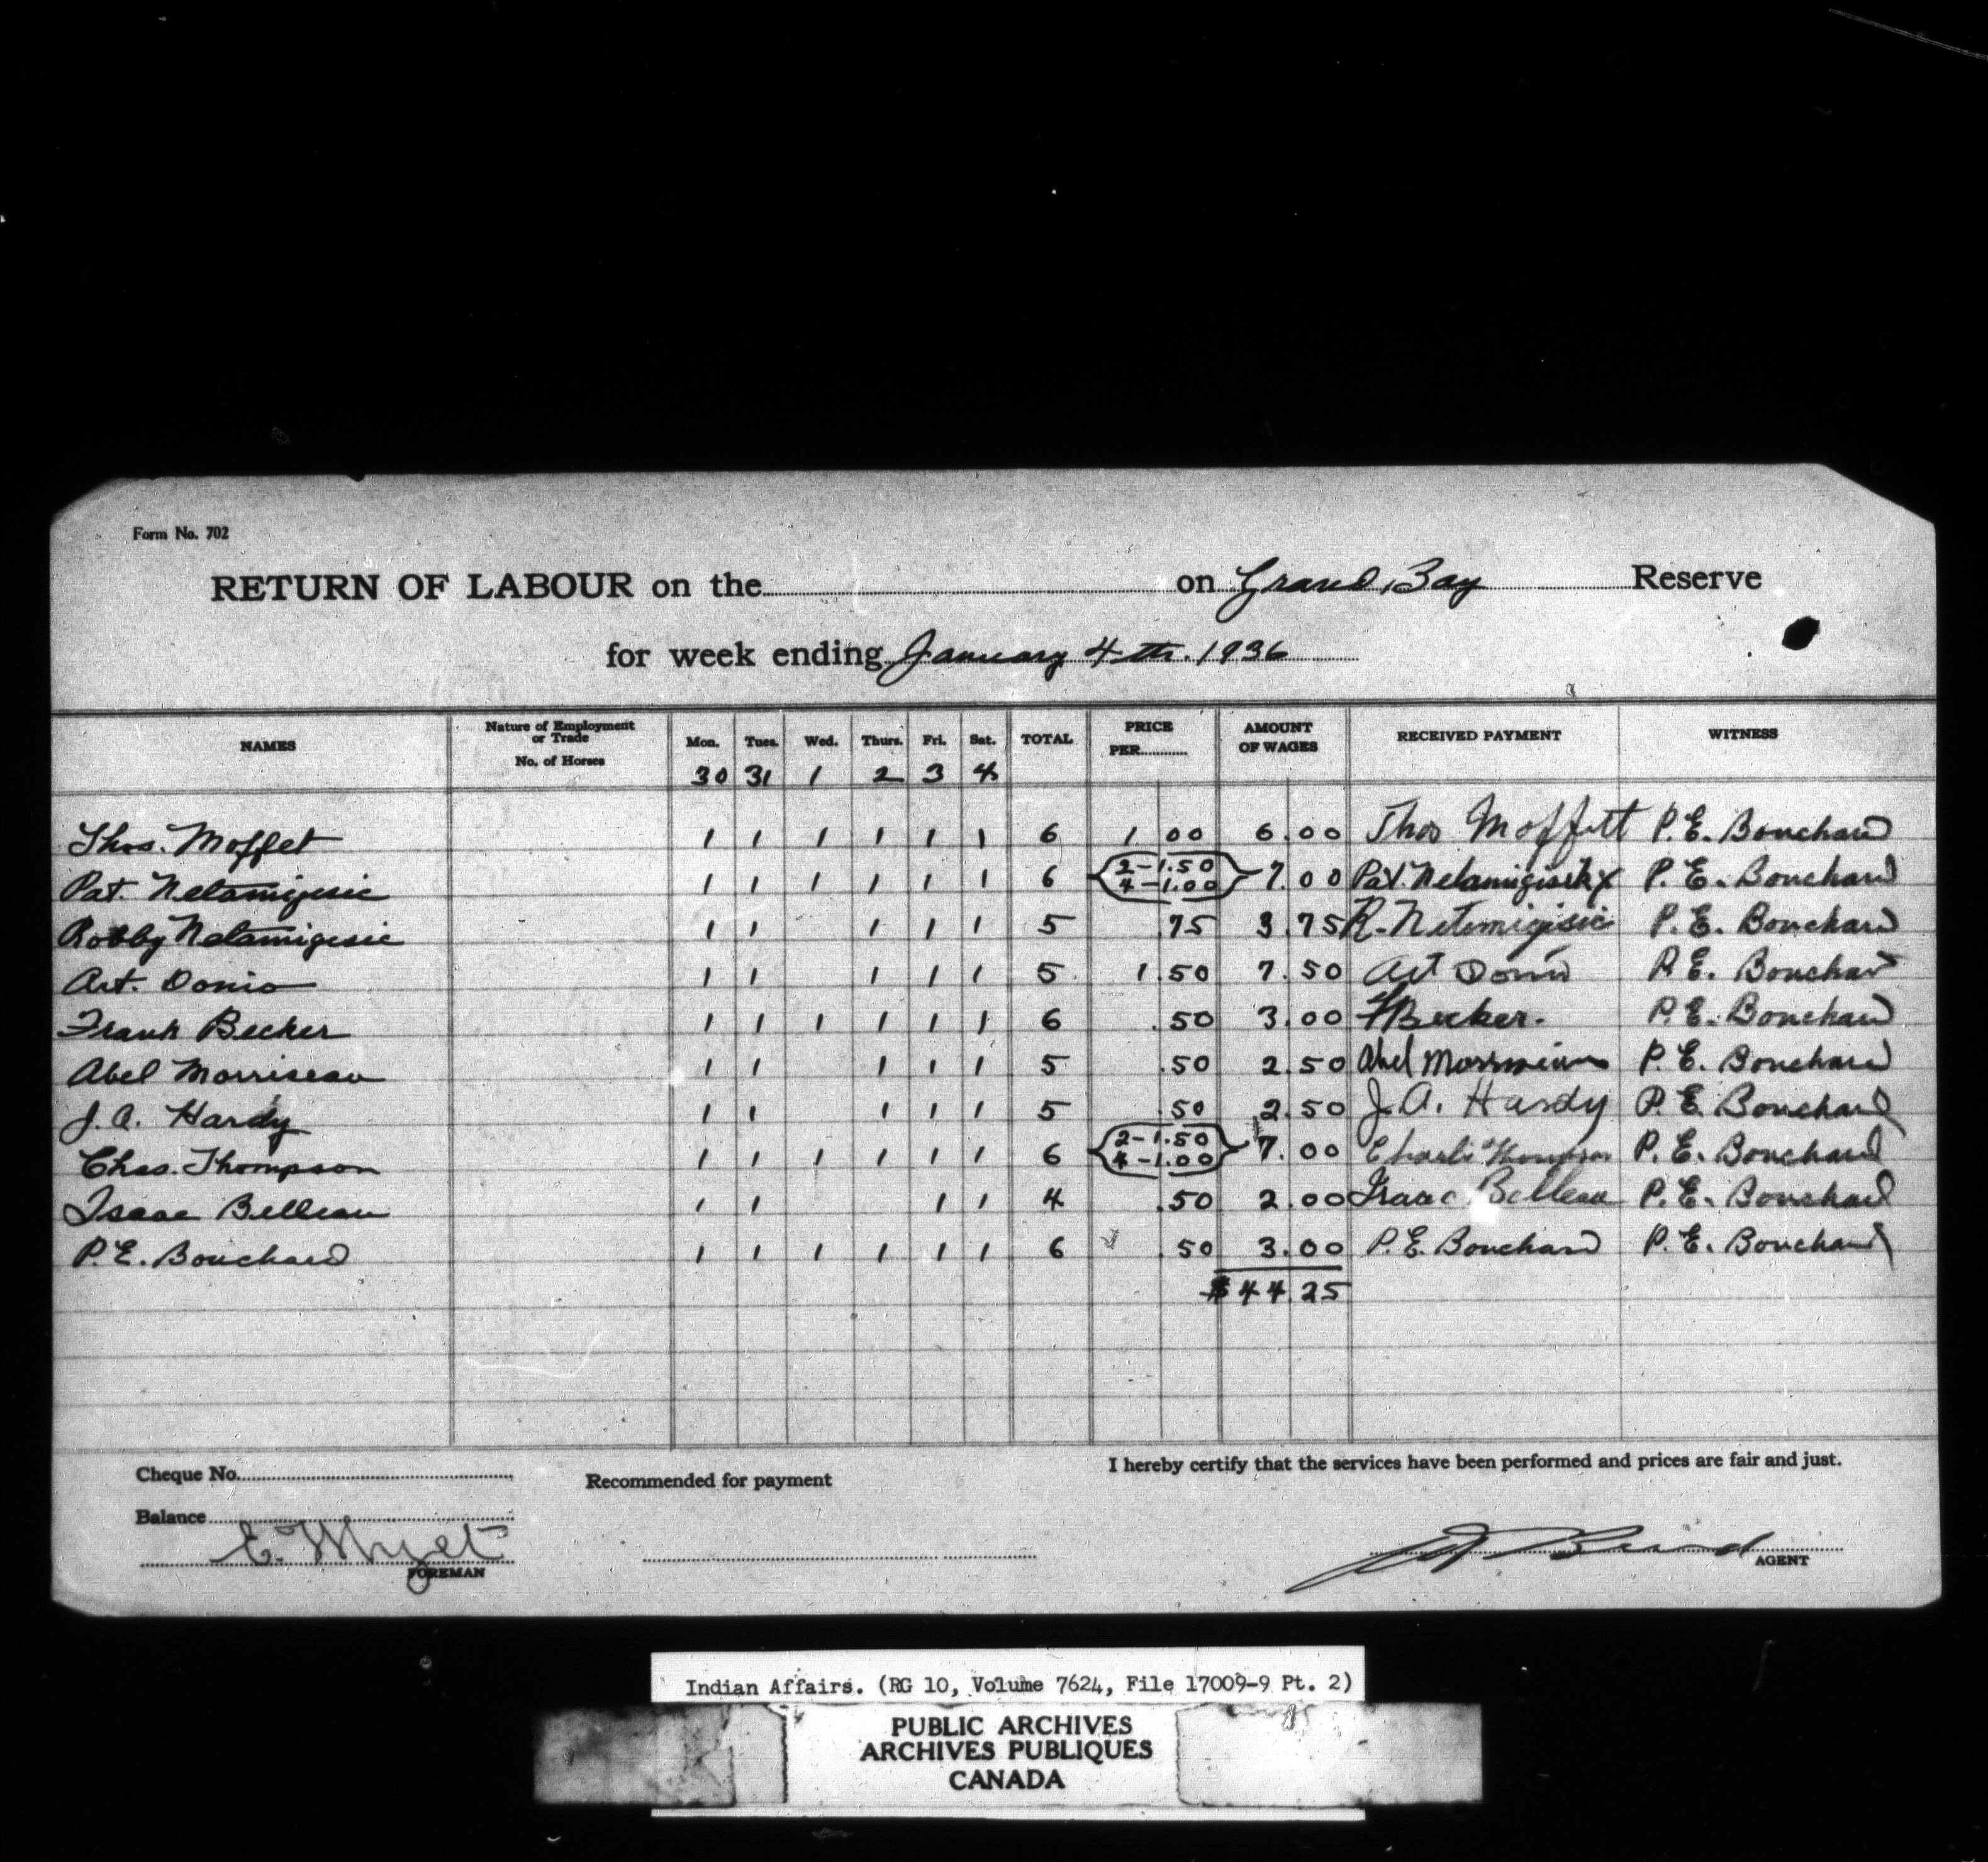 Form No. 702
RETURN OF LABOUR on the on Grand Bay Reserve
for week ending January 4th. 1936
NAMES Nature of Employment or Trade No. of Horses Mon. Tues. Wed. Thurs. Fri. Sat. TOTAL PRICE PER AMOUNT OF WAGES RECEIVED PAYMENT WITNESS
30 31 1 2 3 4
Thos. Moffet 1 1 1 1 1 1 6 1 00 6.00 Thos Moffett P.E. Bouchard
Pat. Netamigesic 1 1 1 1 1 1 6 2-1.50 4-1.00 7.00 Pat. Netamigisik x P.E. Bouchard
Robby Netamigesic 1 1 1 1 1 5 .75 3.75 R. Netemigisic P.E. Bouchard
Art. Donio 1 1 1 1 1 5 1.50 7.50 Art Donio P.E. Bouchard
Frank Becker 1 1 1 1 1 1 6 .50 3.00 F Becker. P.E. Bouchard
Abel Morriseau 1 1 1 1 1 5 .50 2.50 Abel P.E. Bouchard
J.A. Hardy 1 1 1 1 1 5 .50 2.50 J.A. Hardy P.E. Bouchard
Chas. Thompson 1 1 1 1 1 1 6 2-1.50 4-1.00 7.00 Charlie Thompson P.E. Bouchard
Isaac Belleau 1 1 1 1 4 .50 2.00 Isaac Belleau P.E. Bouchard
P.E. Bouchard 1 1 1 1 1 1 6 .50 3.00 P.E. Bouchard P.E. Bouchard
$44.25
Cheque No. Recommended for payment I hereby certify that the services have been performed and prices are fair and just.
Balance
E.
FOREMAN AGENT
Indian Affairs. (RG 10, Volume 7624, File 17009-9 Pt. 2)
PUBLIC ARCHIVES
ARCHIVES PUBLIQUES
CANADA